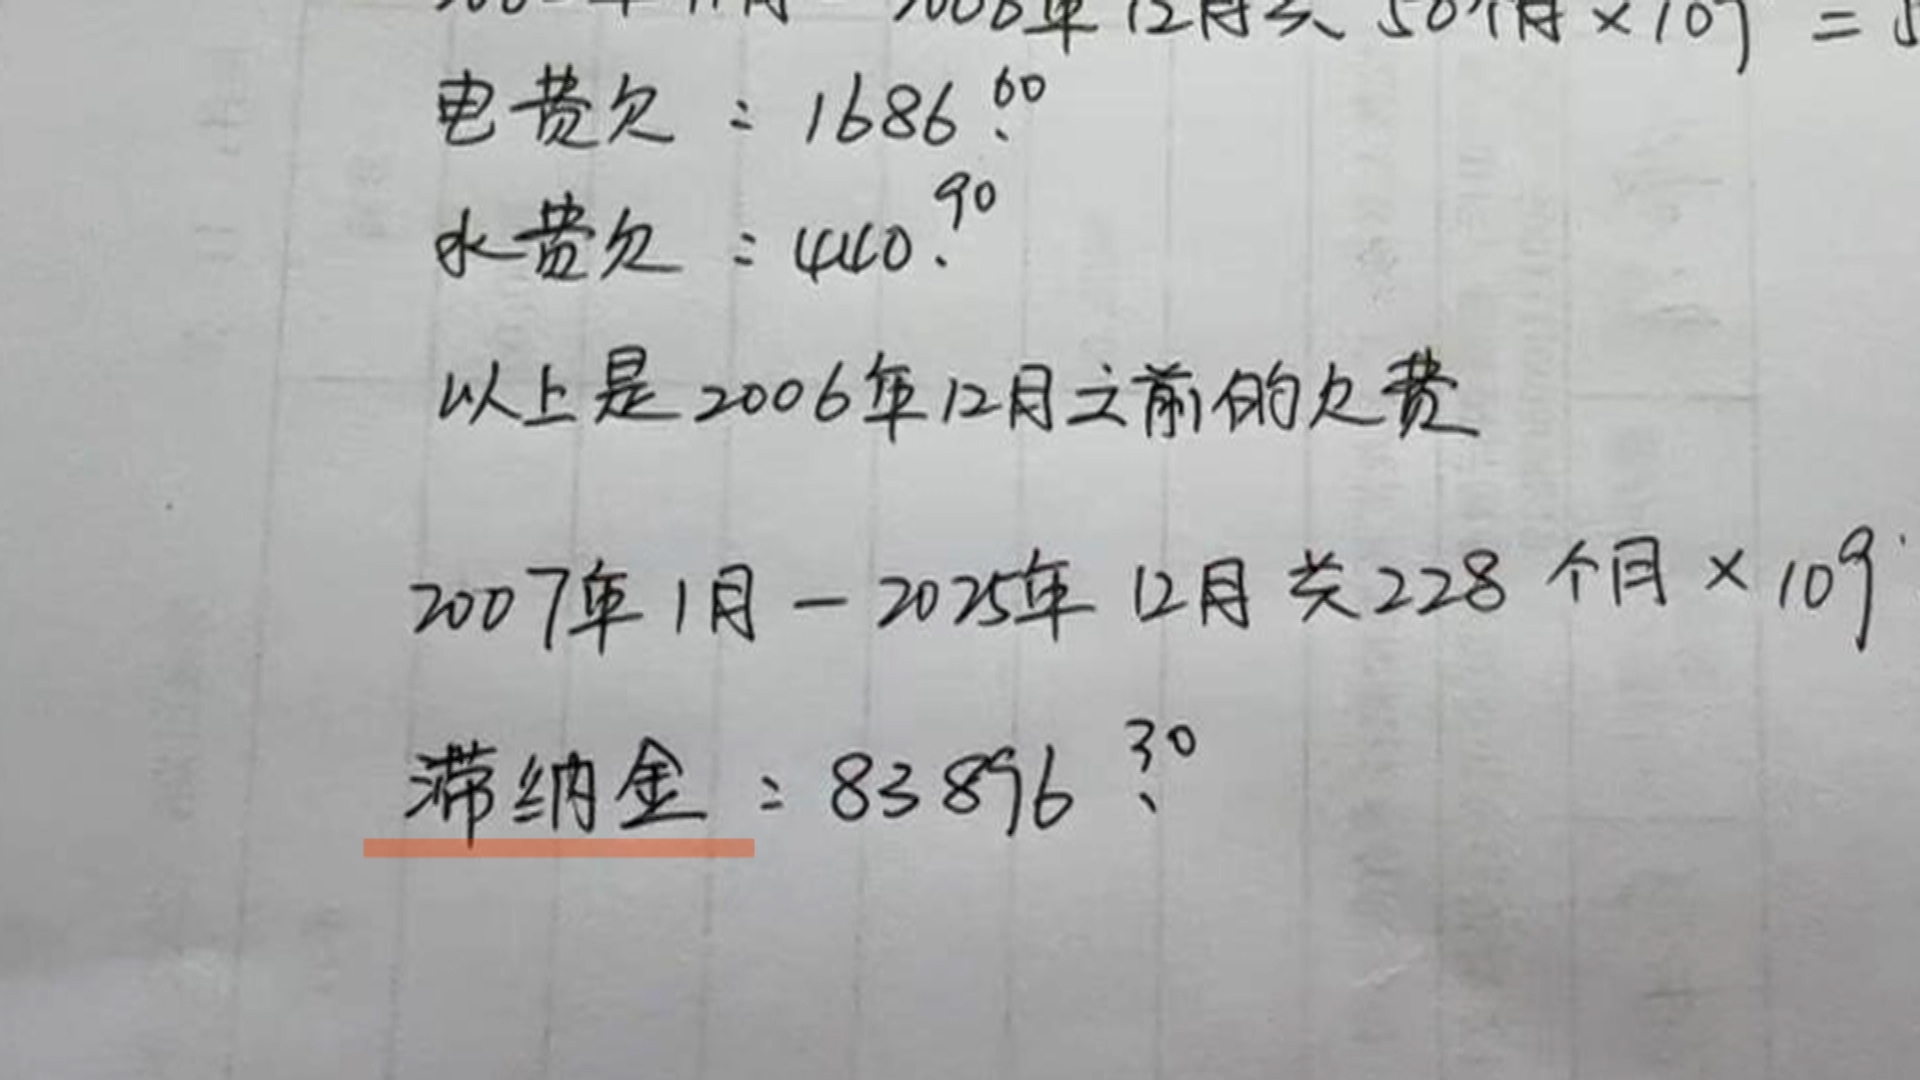 2006年12月共 50个月×109 =
电费欠：1686.60
水费欠：440.90
以上是2006年12月之前的欠费
2007年1月－2025年12月共228个月×109
滞纳金：83896.30